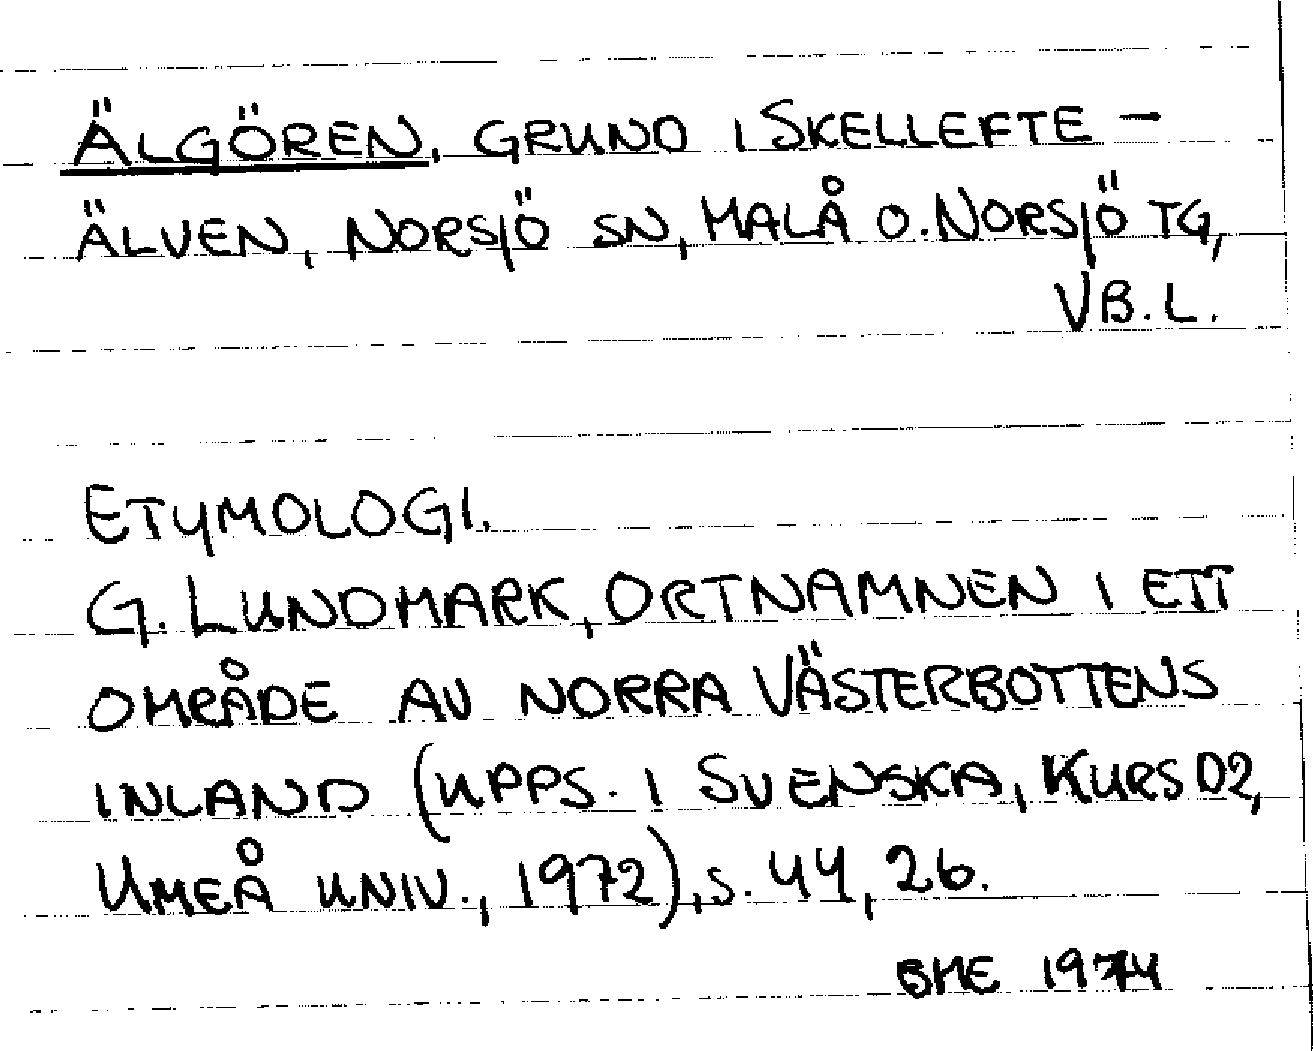 ÄLGÖREN, GRUND I SKELLEFTE-
ÄLVEN, NORSJÖ SN, MALÅ O. NORSJÖ TG,
VB. L.
ETYMOLOGI.
G. LUNDMARK, ORTNAMNEN I ETT
OMRÅDE AV NORRA VÄSTERBOTTENS
INLAND (UPPS. I SVENSKA, KURS D2,
UMEÅ UNIV., 1972), S. 44, 26.
BME 1974